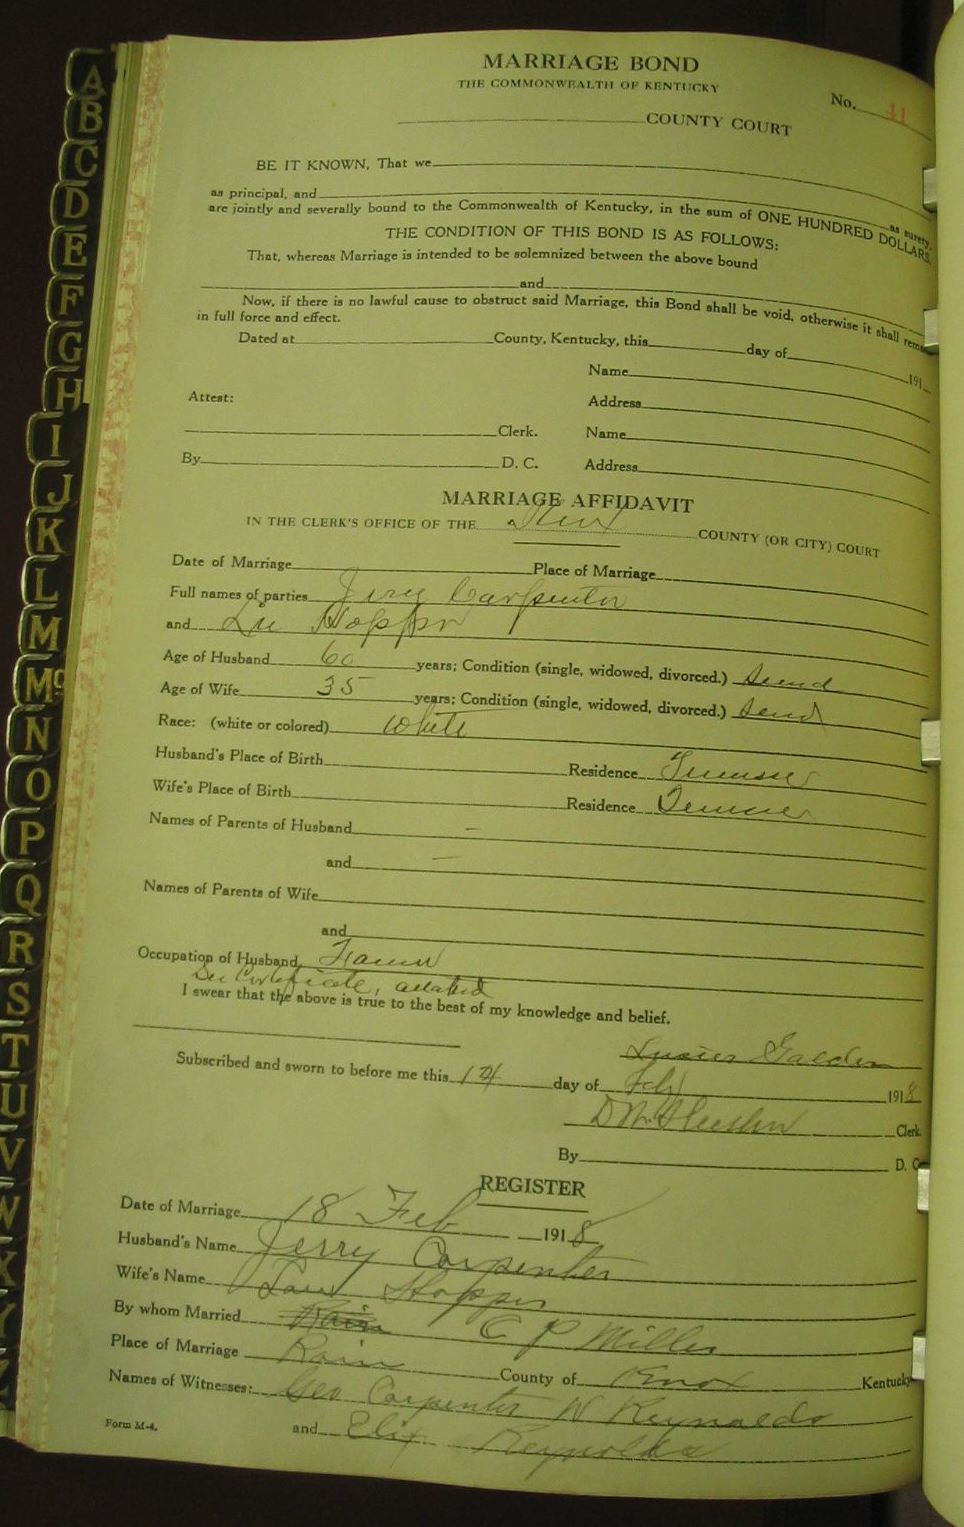 MARRIAGE BOND
THE COMMONWEALTH OF KENTUCKY
No. 41
COUNTY COURT
BE IT KNOWN, That we
as principal, and as surety,
are jointly and severally bound to the Commonwealth of Kentucky, in the sum of ONE HUNDRED DOLLARS.
THE CONDITION OF THIS BOND IS AS FOLLOWS:
That, whereas Marriage is intended to be solemnized between the above bound
and
Now, if there is no lawful cause to obstruct said Marriage, this Bond shall be void, otherwise it shall rema
in full force and effect.
Dated at County, Kentucky, this day of 191
Name
Attest: Address
Clerk. Name
By D. C. Address
MARRIAGE AFFIDAVIT
IN THE CLERK'S OFFICE OF THE Knox COUNTY (OR CITY) COURT
Date of Marriage Place of Marriage
Full names of parties Jerry Carpenter
and Lu Hopper
Age of Husband 60 years; Condition (single, widowed, divorced.)
Age of Wife 35 years; Condition (single, widowed, divorced.)
Race: (white or colored) White
Husband's Place of Birth Residence
Wife's Place of Birth Residence
Names of Parents of Husband —
and —
Names of Parents of Wife
and
Occupation of Husband Farmer
See Certificate, attached
I swear that the above is true to the best of my knowledge and belief.
Subscribed and sworn to before me this 14 day of Feby 1918
Clerk.
By D. C.
REGISTER
Date of Marriage 18 Feb 1918
Husband's Name Jerry Carpenter
Wife's Name Hopper
By whom Married C P Miller
Place of Marriage Rain County of Knox Kentucky
Names of Witnesses: Geo Carpenter W Reynolds
and Eliz Reynolds
Form M-4.
A
B
C
D
E
F
G
H
I
J
K
L
M
Mc
N
O
P
Q
R
S
T
U
V
W
X
Y
Z